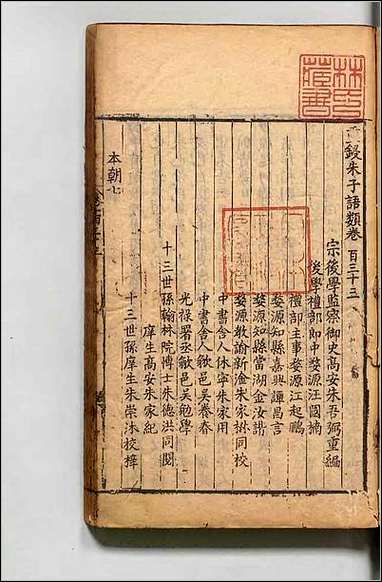 重鋟朱子語類卷百三十三
宗後學監察御史高安朱吾弼重編
後學禮部郎中婺源汪國楠
禮部主事婺源江起鵬
婺源知縣嘉興譚昌言
婺源知縣當湖金汝諧
婺源教諭新淦朱家楙同校
中書舍人休寧朱家用
中書舍人歙邑吳養春
光祿署丞歙邑吳勉學
十三世孫翰林院博士朱德洪同閱
庠生高安朱家紀
十三世孫庠生朱崇沐校梓
本朝七
林氏藏書